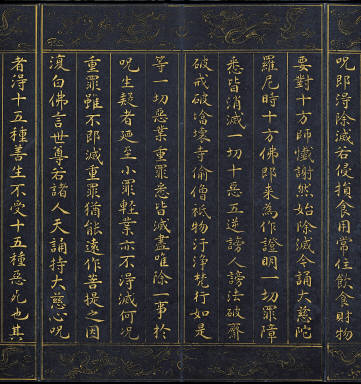 呪即得除滅若侵損食用常住飲食財物
要對十方師懺謝然始除滅今誦大慈陀
羅尼時十方佛即来為作證明一切罪障
悉皆消滅一切十惡五逆謗人謗法破齋
破戒破塔壞寺偷僧祇物汙淨梵行如是
等一切惡業重罪悉皆滅盡唯除一事於
呪生疑者廼至小罪輕業亦不得滅何況
重罪雖不即滅重罪猶能遠作菩提之因
復白佛言世尊若諸人天誦持大慈心呪
者得十五種善生不受十五種惡死也其